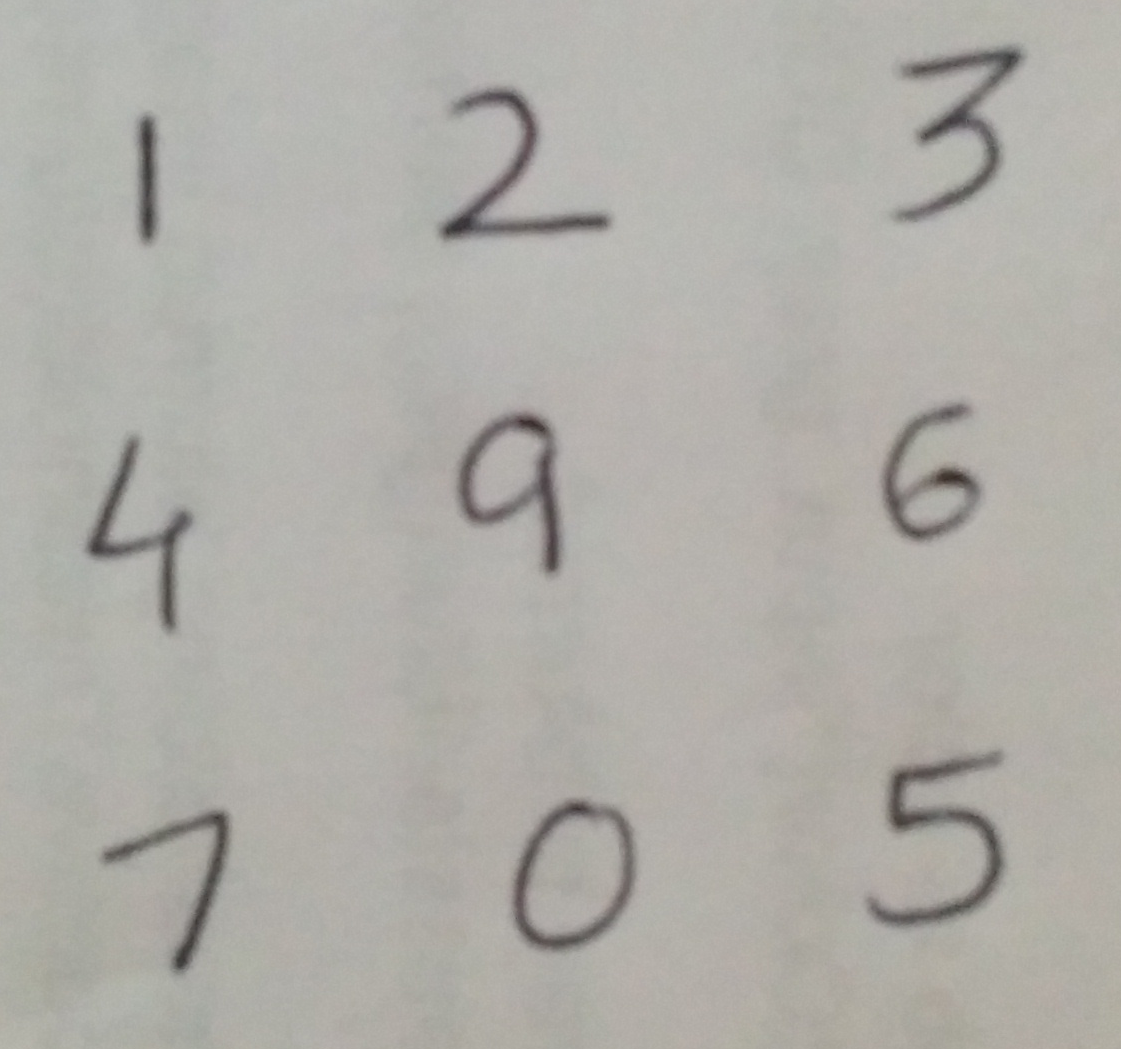 1 2 3
4 9 6
7 0 5